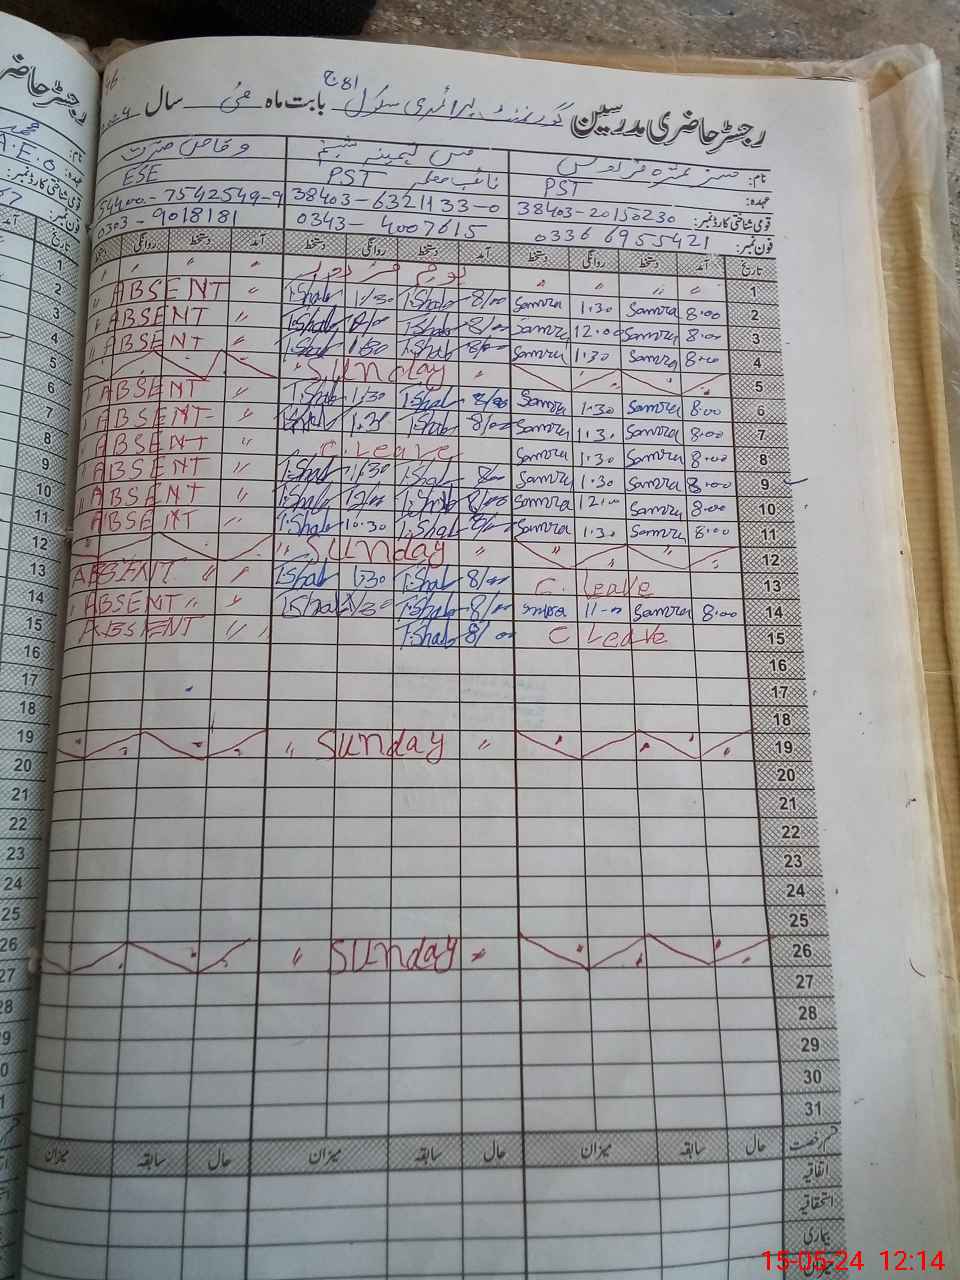 رجسٹر حاضری مدرسین گورنمنٹ پرائمری سکول 81 ج بابت ماہ مئی سال 2024
نام:
عہدہ: PST نائب معلم PST ESE
قومی شناختی کارڈ نمبر: 38403-20150230 38403-6321133-0 34400-7542549-9
فون نمبر: 0336 6955421 0343-4007615 0303-9018181
تاریخ آمد دستخط روانگی دستخط آمد دستخط روانگی دستخط آمد دستخط روانگی
1 " " " " یوم مزدور " " " "
2 8:00 Samra 1:30 Samra 8/00 T.Shab 1/30 T.Shab " ABSENT "
3 8:00 Samra 12:00 Samra 8/00 T.Shab T.Shab " ABSENT "
4 8:00 Samra 1:30 Samra 8/00 T.Shab 1/30 T.Shab " ABSENT "
5 " Sunday "
6 8:00 Samra 1:30 Samra 8/00 T.Shab 1/30 T.Shab " ABSENT
7 8:00 Samra 1:30 Samra 8/00 T.Shab 1:3 " ABSENT "
8 8:00 Samra 1:30 Samra C. Leave " ABSENT
9 8:00 Samra 1:30 Samra 8/00 T.Shab 1/30 T.Shab " ABSENT "
10 8:00 Samra 12:00 Samra 8/00 T.Shab 12/00 T.Shab " ABSENT "
11 8:00 Samra 1:30 Samra 8/00 T.Shab 10:30 T.Shab " ABSENT
12 " Sunday "
13 C. Leave 8/00 T.Shab 1/30 T.Shab " " ABSENT
14 8:00 Samra 11:00 Samra 8/00 T.Shab 1/30 T.Shab " " ABSENT "
15 C Leave 8/00 T.Shab " ABSENT
16
17
18
19 " Sunday "
20
21
22
23
24
25
26 " Sunday "
27
28
29
30
31
قسم رخصت حال سابقہ میزان حال سابقہ میزان حال سابقہ میزان
اتفاقیہ
استحقاقیہ
بیماری
15-05-24 12:14